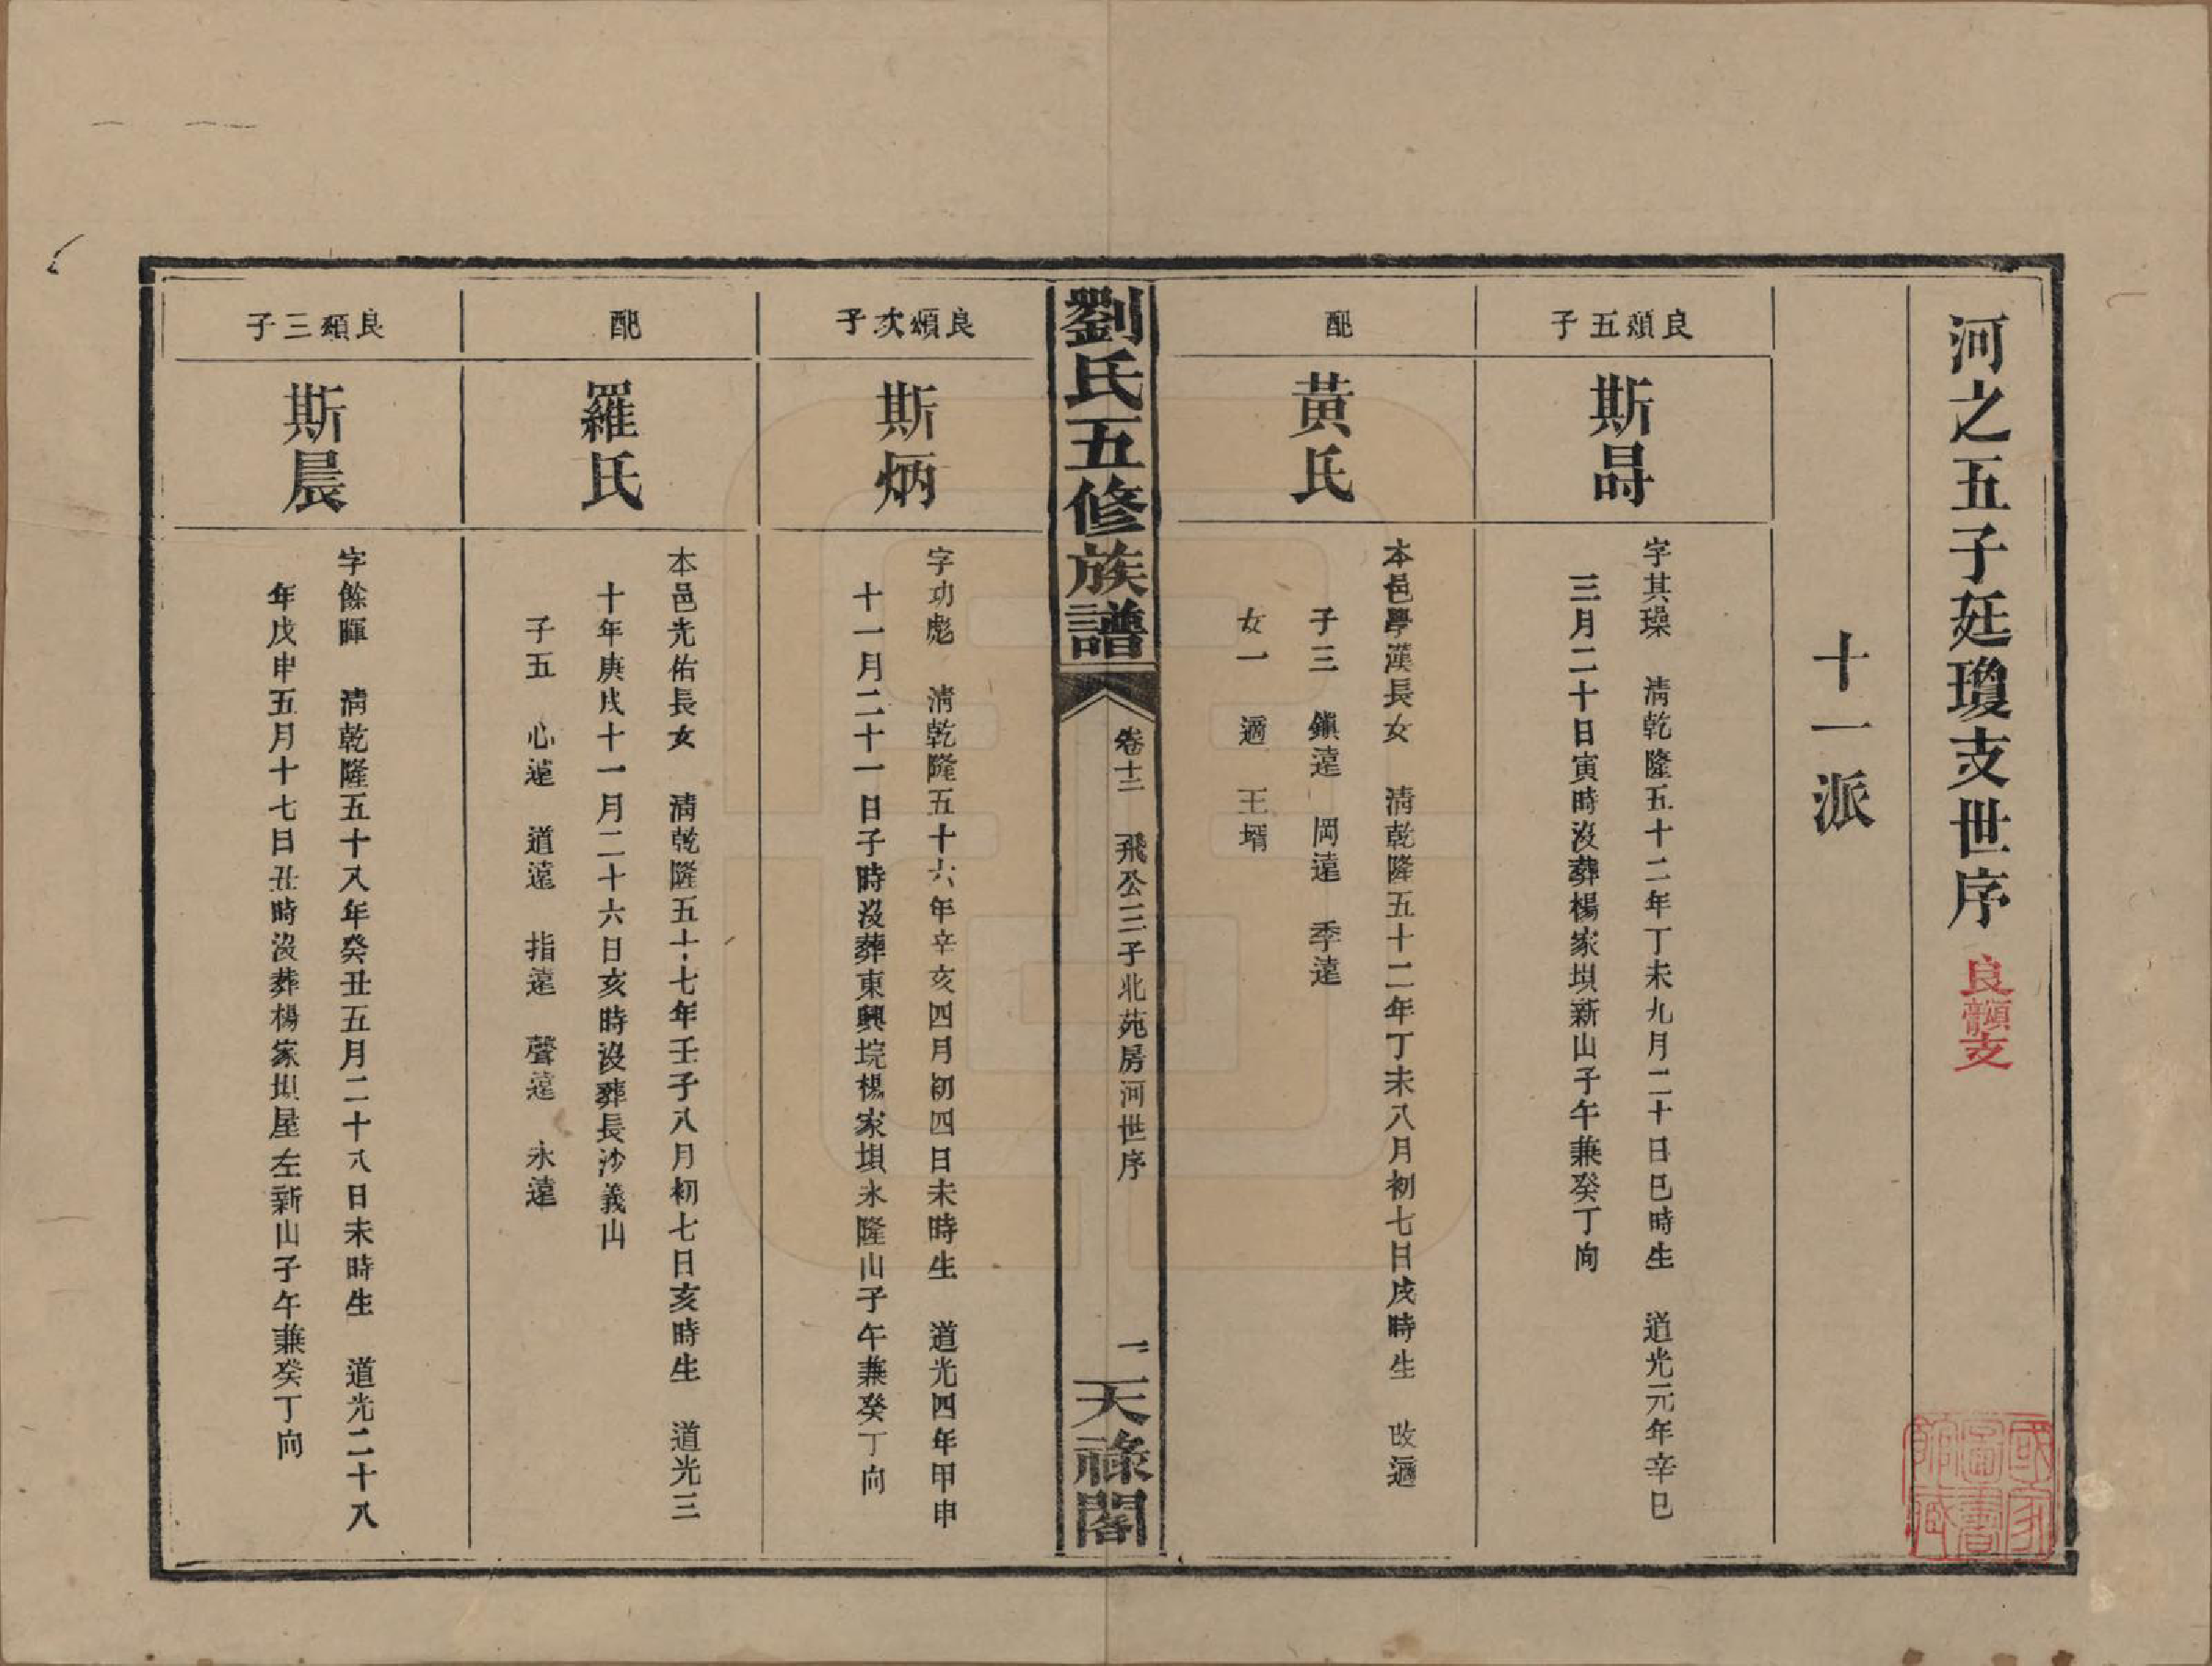 河之五子廷瓊支世序 良䫫支
十一派
良䫫五子
斯㫭
字其璪 清乾隆五十二年丁未九月二十日巳時生 道光元年辛巳
三月二十日寅時沒葬楊家垻新山子午兼癸丁向
配
黃氏
本邑學漢長女 清乾隆五十二年丁未八月初七日戌時生 改適
子三 鎮遠 岡遠 季遠
女一 適 王壻
劉氏五修族譜 卷十二 飛公三子北苑房河世序 二 天祿閣
良䫫次子
斯炳
字功彪 清乾隆五十六年辛亥四月初四日未時生 道光四年甲申
十一月二十一日子時沒葬東興垸楊家垻永隆山子午兼癸丁向
配
羅氏
本邑光佑長女 清乾隆五十七年壬子八月初七日亥時生 道光三
十年庚戌十一月二十六日亥時沒葬長沙義山
子五 心遠 道遠 指遠 聲遠 永遠
良䫫三子
斯晨
字餘暉 清乾隆五十八年癸丑五月二十八日未時生 道光二十八
年戊申五月十七日丑時沒葬楊家垻屋左新山子午兼癸丁向
國家圖書館藏